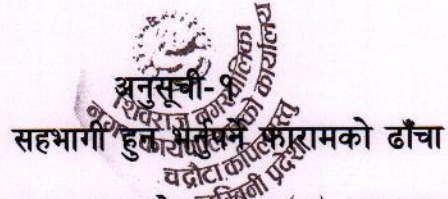 अनुसूची-१
सहभागी हुन भर्नुपर्ने फारामको ढाँचा
शिवराज नगरपालिका
नगर कार्यपालिकाको कार्यालय
चन्द्रौटा कपिलवस्तु
लुम्बिनी प्रदेश